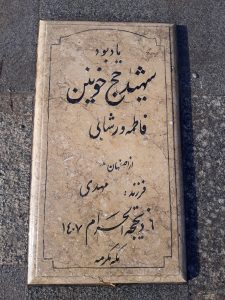 یادبود
شهید حج خونین
فاطمه درشابی
فرزند: مهدی
۶ ذیحجة الحرام ۱۴۰۷
مکه مکرمه